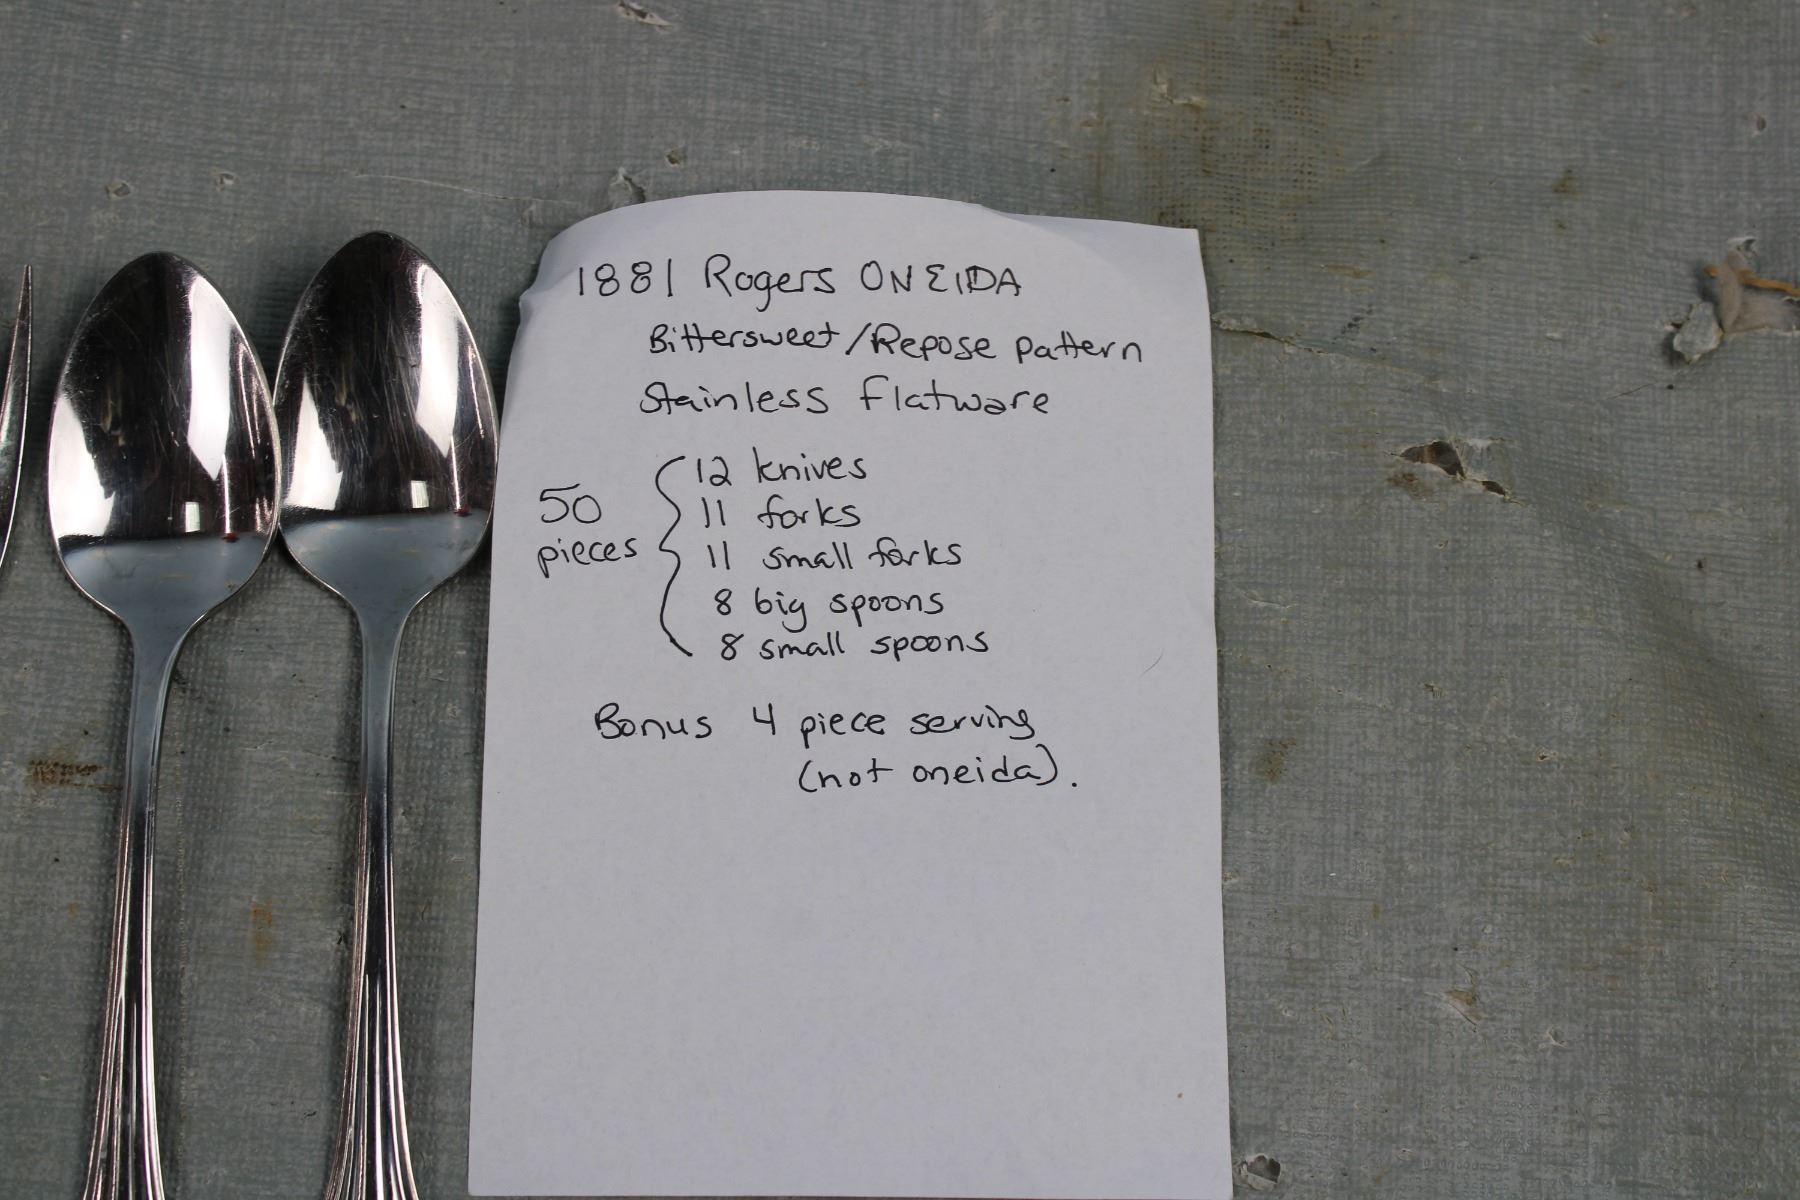 1881 Rogers ONEIDA
Bittersweet/Repose pattern
Stainless flatware
50 pieces
12 knives
11 forks
11 small forks
8 big spoons
8 small spoons
Bonus 4 piece serving
(not oneida).